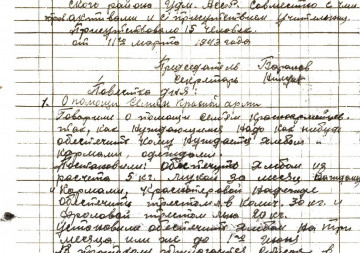 ского района Удм. АССР. совместно с чле
правл. активом и с присутствием учительниц.
Присутствовало 15 человек.
от 11го марта 1943 года
Председатель Воронов
Секретарь
Повестка дня:
1. О помощи семьям красной армии
Говорили о помощи семьям красноармейцев.
так, как нуждающимся надо как нибудь
обеспечить кому нуждается хлебом
кормами, одеждами.
Постановили обеспечить хлебом из
расчета 5 кг. муки за месяц
и кормами, Красноперовой Надежде
обеспечить трестом в колич. 30 кг. и
Фроловой трестом льна 20 кг.
Установили обеспечить хлебом на три
месяца или же до 1го июня